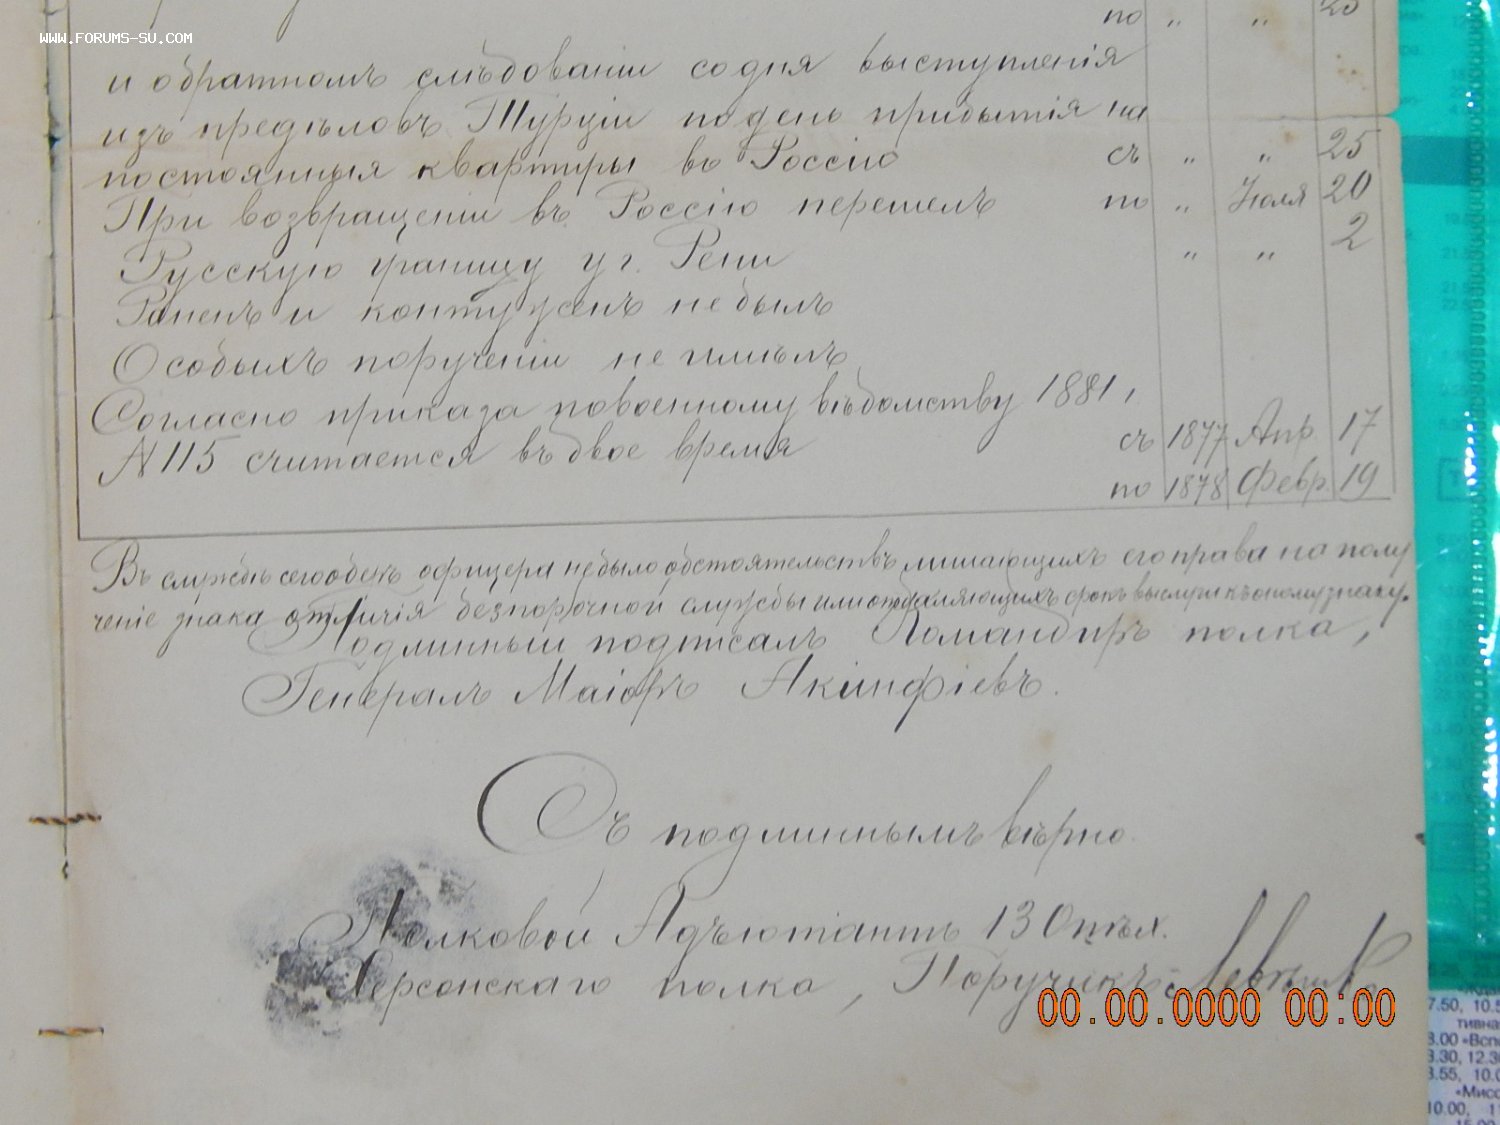 WWW.FORUMS-SU.COM
по " " 25
и обратномъ слѣдованіи со дня выступленія
изъ предѣловъ Турціи по день прибытія на
постоянныя квартиры въ Россію съ " " 25
При возвращеніи въ Россію перешелъ по " Іюля 20
Русскую границу у г. Рени " " 2
Раненъ и контуженъ не былъ
Особыхъ порученій не имѣлъ
Согласно приказа по военному вѣдомству 1881 г.
N 115 считается въ двое время съ 1877 Апр. 17
по 1878 Февр. 19
Въ службѣ сего оберъ офицера не было обстоятельствъ лишающихъ его права на полу
ченіе знака отличія безпорочной службы или отдаляющихъ срокъ выслуги къ оному знаку.
Подлинный подписалъ Командиръ полка,
Генералъ Маіоръ Акинфіевъ.
Съ подлиннымъ вѣрно
Полковой Адъютантъ 130 пѣх.
Херсонскаго полка, Поручикъ
00.00.0000 00:00
7.50, 10.5
тивна
8.00 «Вспо
8.30, 12.30
8.55, 10.0
«Мисс
10.00, 1